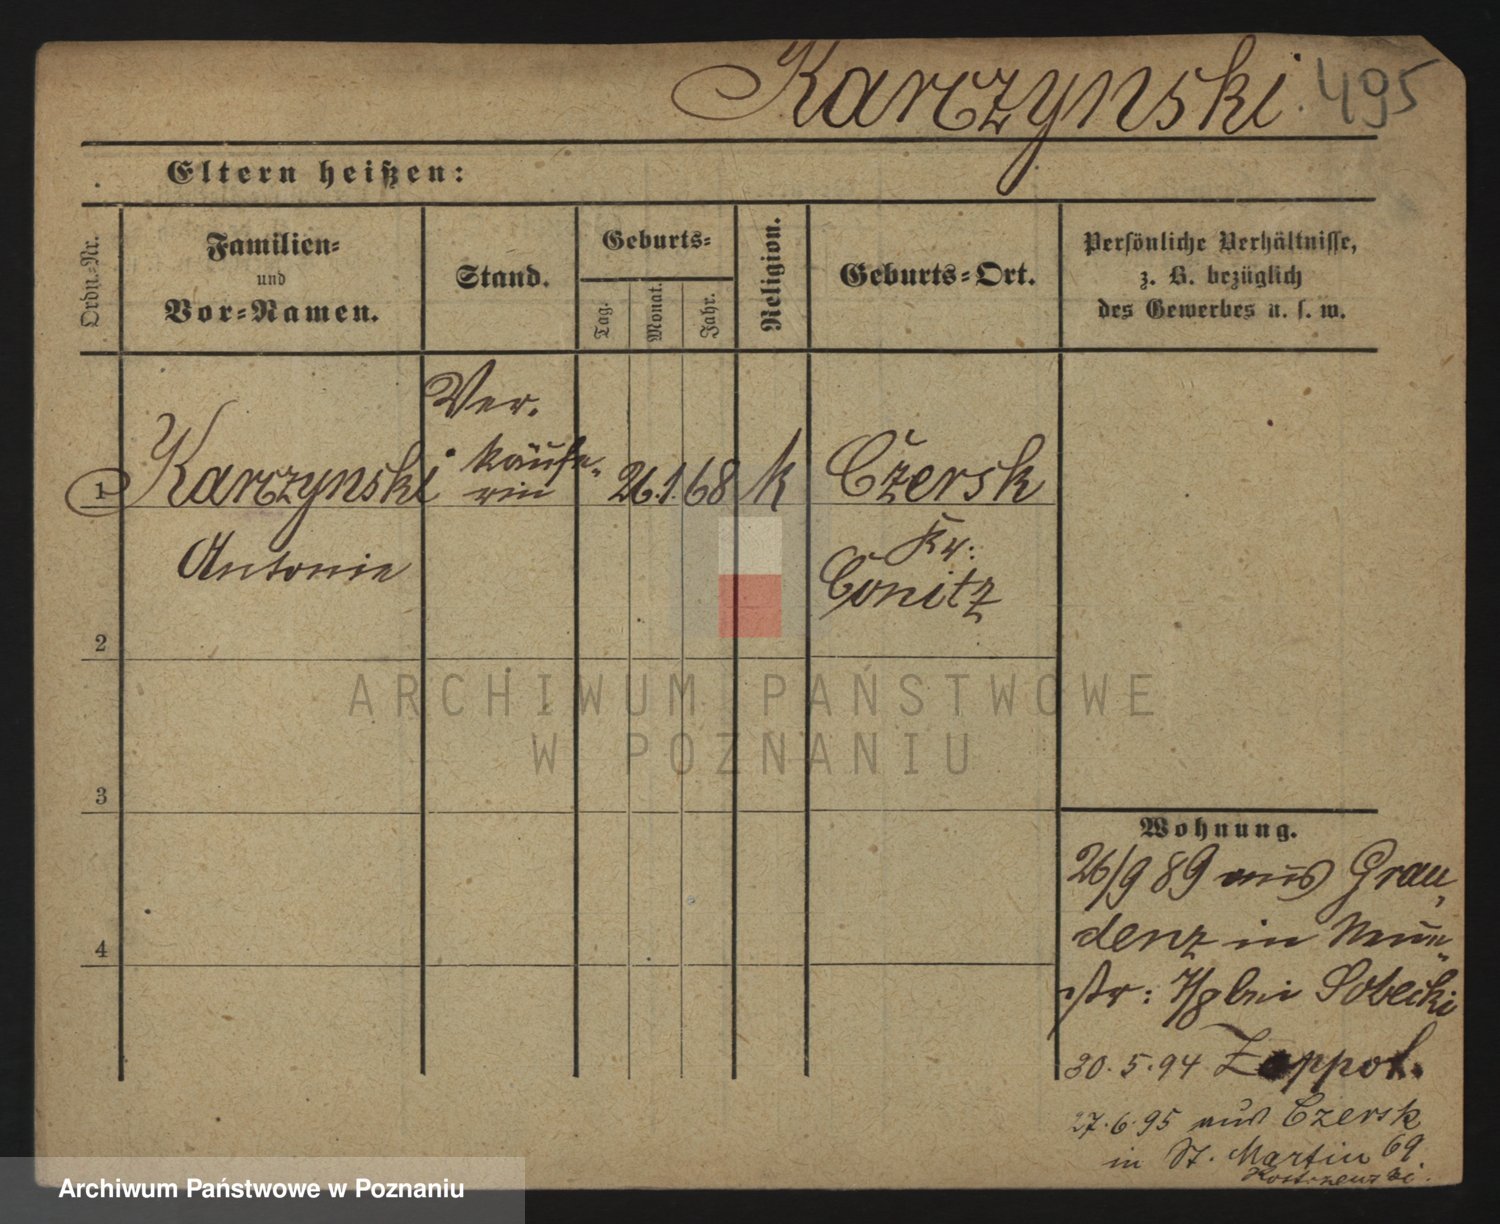 Karczynski. 495
Eltern heißen:
Ordn.-Nr.
Familien-
und
Vor-Namen.
Stand.
Geburts-
Tag.
Monat.
Jahr.
Religion.
Geburts-Ort.
Persönliche Verhältnisse,
z. B. bezüglich
des Gewerbes u. s. w.
1
Karczynski
Antonie
Ver-
käufe-
rin
26.1.68
k
Czersk
Kr:
Conitz
2
3
4
Wohnung.
26/9 89 aus Grau-
denz in Neue-
str: 7/8 bei Sobecki
30.5.94 Zoppot.
27.6.95 aus Czersk
in St. Martin 69
ARCHIWUM PAŃSTWOWE
W POZNANIU
Archiwum Państwowe w Poznaniu